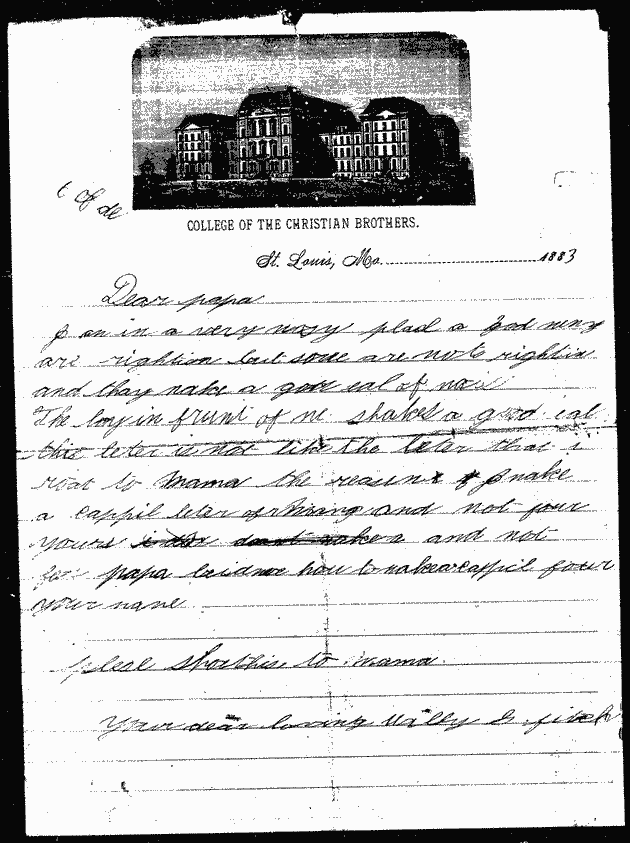 t of de
COLLEGE OF THE CHRISTIAN BROTHERS.
St. Louis, Mo. 1883
Dear papa
I on in a very nosy plad a good meny
are rightion but some are note rightin
and thay nake a good eal of nois
The boy in frunt of me shakes a good eal
this leter is not like the leter that i
roat to mama the reason I nake
a cappil leter of and not four
yours and not
for papa how to nake a cappil four
your name
plese shoe this to mama
Your dear loving Willy D. fitch